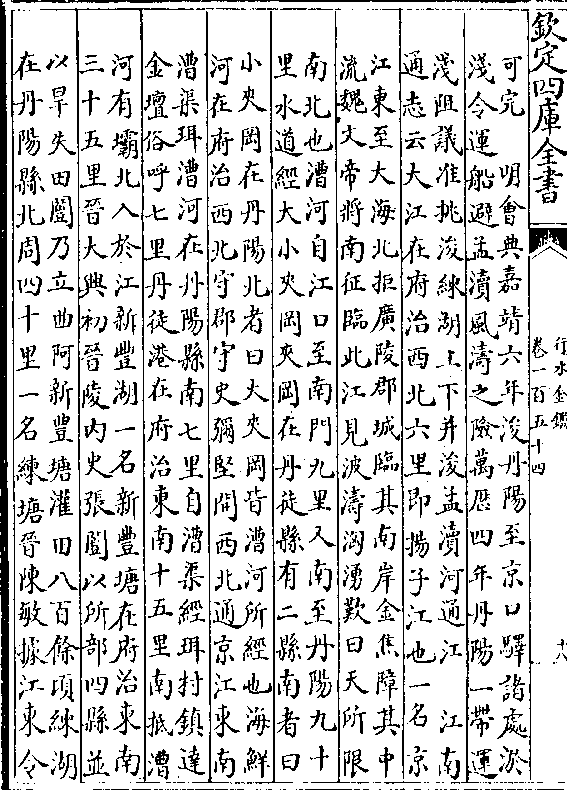 欽定四庫全書
行水金鑑
卷一百五十四
十八
可完　明會典嘉靖六年浚丹陽至京口驛諸處淤
淺令運船避孟瀆風濤之險萬厯四年丹陽一帶運
淺阻議准挑浚練湖上下并浚孟瀆河通江　江南
通志云大江在府治西北六里即揚子江也一名京
江東至大海北拒廣陵郡城臨其南岸金焦障其中
流魏文帝將南征臨此江見波濤洶湧歎曰天所限
南北也漕河自江口至南門九里又南至丹陽九十
里水道經大小夾岡夾岡在丹徒縣有二縣南者曰
小夾岡在丹陽北者曰大夾岡皆漕河所經也海鮮
河在府治西北守郡守史彌堅開西北通京江東南
漕渠珥漕河在丹陽縣南七里自漕渠經珥村鎮達
金壇俗呼七里丹徒港在府治東南十五里南抵漕
河有壩北入於江新豐湖一名新豐塘在府治東南
三十五里晉大興初晉陵內史張闓以所部四縣並
以旱失田闓乃立曲阿新豐塘灌田八百餘頃練湖
在丹陽縣北周四十里一名練塘晉陳敏據江東令